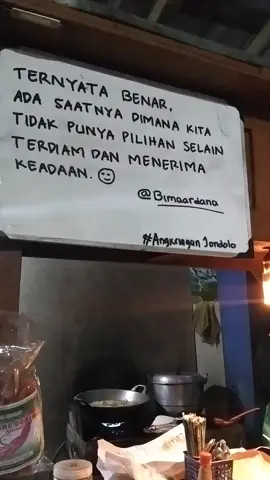 TERNYATA BENAR,
ADA SAATNYA DIMANA KITA
TIDAK PUNYA PILIHAN SELAIN
TERDIAM DAN MENERIMA
KEADAAN. ☺
@Bimaardana
#Angkringan Jondolo